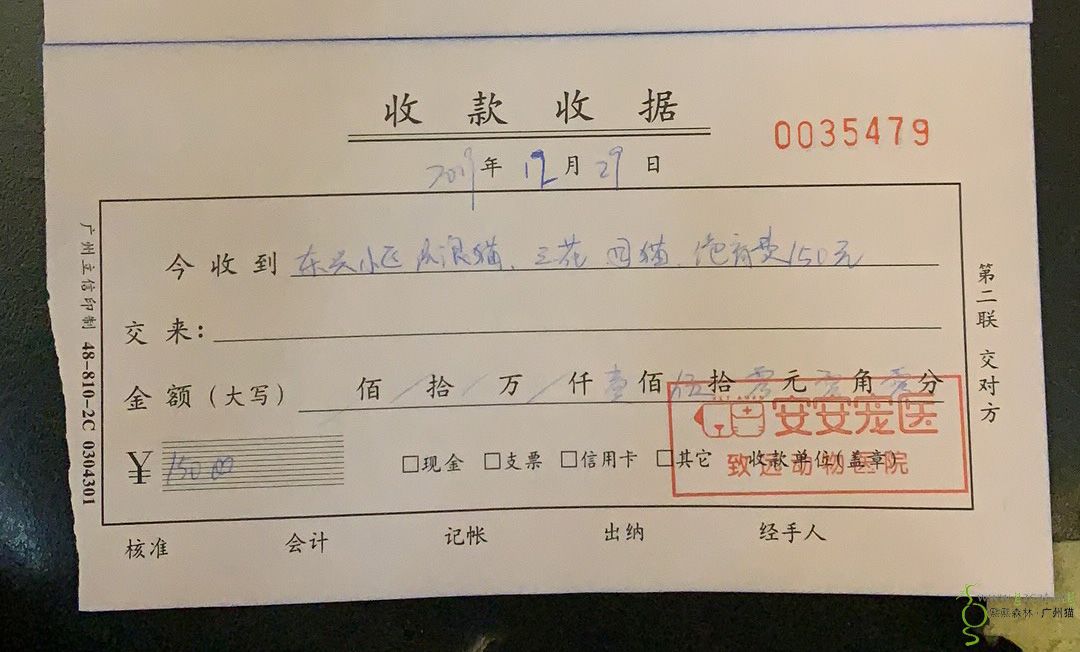 收款收据
0035479
2019年12月29日
今收到 东兴小区流浪猫、三花 母猫、绝育费150元
交来：
金额（大写） 佰 拾 万 仟 壹佰 伍拾 零元 零角 零分
¥ 150.00
□现金 □支票 □信用卡 □其它 收款单位（盖章）
安安宠医
致远动物医院
核准 会计 记帐 出纳 经手人
第二联 交对方
广州立信印制 48-810-2C 0304301
熙熙森林·广州猫